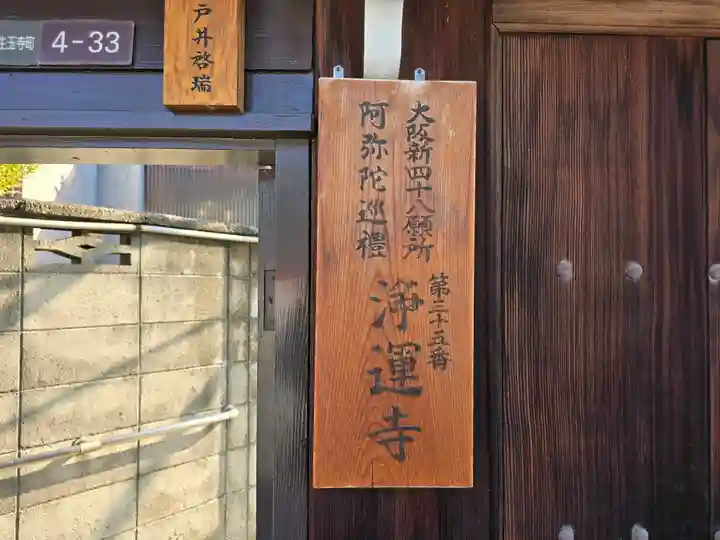 生玉寺町 4-33
戸井啓瑞
大阪新四十八願所
第三十五番
阿弥陀巡禮
浄運寺